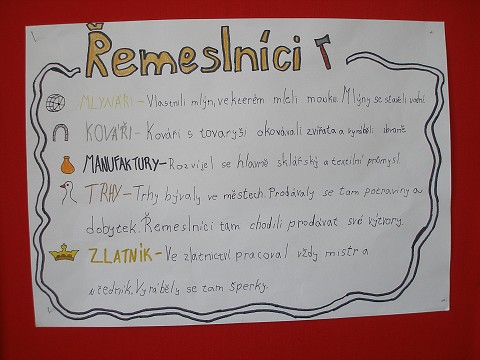 Řemeslníci
MLYNÁŘI - Vlastnili mlýn, ve kterém mleli mouku. Mlýny se stavěli vodní.
KOVÁŘI - Kováři s tovaryši okovávali zvířata a vyráběli zbraně.
MANUFAKTURY - Rozvíjel se hlavně sklářský a textilní průmysl.
TRHY - Trhy bývaly ve městech. Prodávaly se tam potraviny a
dobytek. Řemeslníci tam chodili prodávat své výtvory.
ZLATNÍK - Ve zlatnictví pracoval vždy mistr a
učedník. Vyráběly se tam šperky.